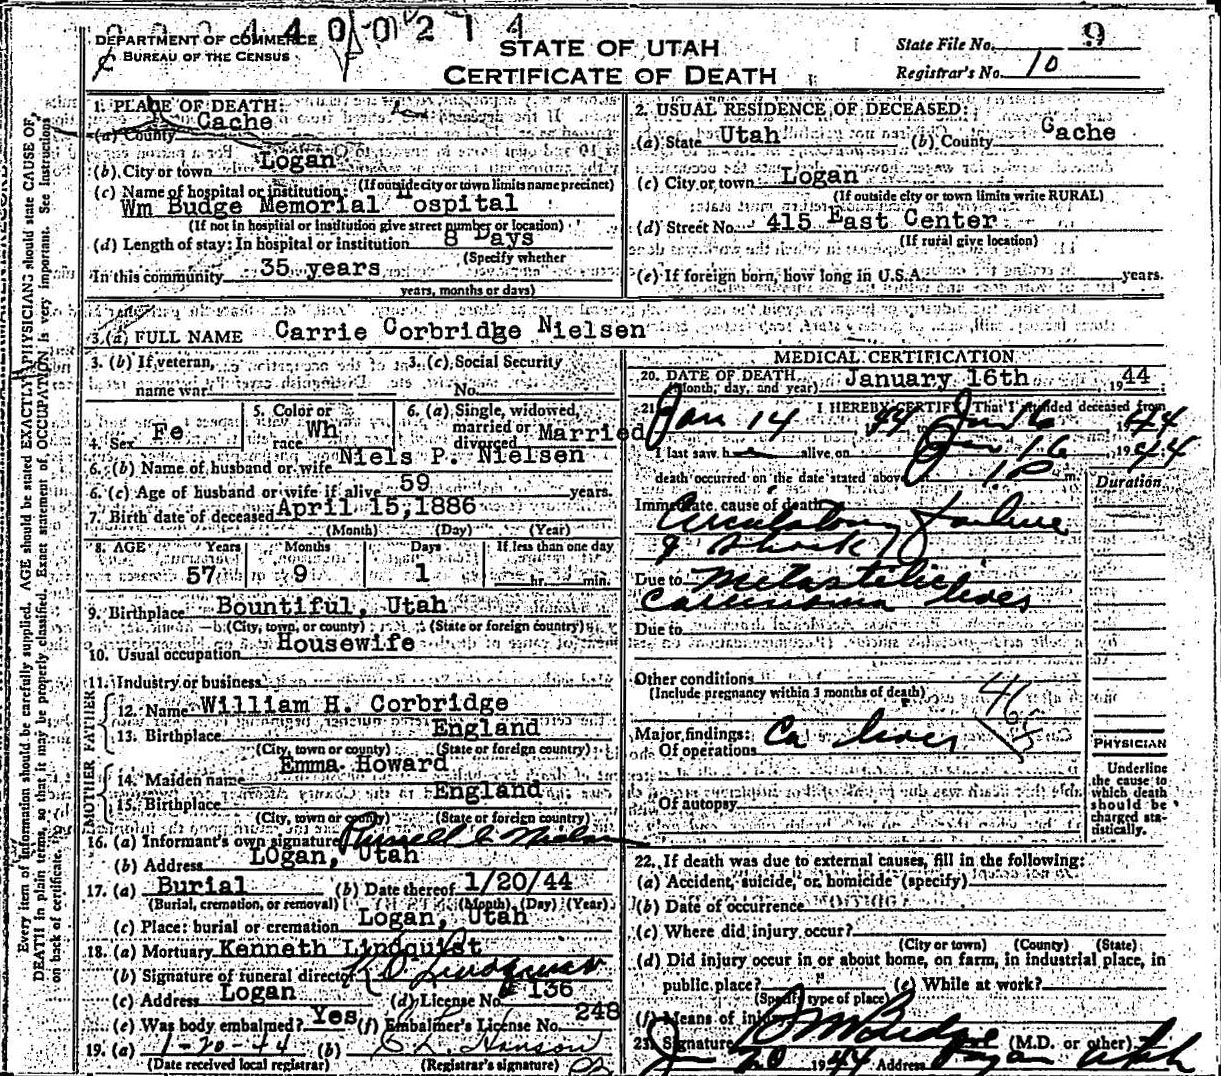 DEPARTMENT OF COMMERCE
BUREAU OF THE CENSUS
STATE OF UTAH
CERTIFICATE OF DEATH
State File No. 9
Registrar's No. 10
1. PLACE OF DEATH:
(a) County Cache
(b) City or town Logan
(If outside city or town limits name precinct)
(c) Name of hospital or institution:
Wm Budge Memorial Hospital
(If not in hospital or institution give street number or location)
(d) Length of stay: In hospital or institution 8 Days
(Specify whether
In this community 35 years
years, months or days)
2. USUAL RESIDENCE OF DECEASED:
(a) State Utah (b) County Cache
(c) City or town Logan
(If outside city or town limits write RURAL)
(d) Street No. 415 East Center
(If rural give location)
(e) If foreign born, how long in U.S.A. years.
3. (a) FULL NAME Carrie Corbridge Nielsen
3. (b) If veteran, name war
3. (c) Social Security No.
4. Sex Fe
5. Color or race Wh
6. (a) Single, widowed, married or divorced Married
6. (b) Name of husband or wife Niels P. Nielsen
6. (c) Age of husband or wife if alive 59 years.
7. Birth date of deceased April 15, 1886
(Month) (Day) (Year)
8. AGE Years Months Days If less than one day
57 9 1 hr. min.
9. Birthplace Bountiful, Utah
(City, town, or county) (State or foreign country)
10. Usual occupation Housewife
11. Industry or business
FATHER
12. Name William H. Corbridge
13. Birthplace England
(City, town or county) (State or foreign country)
MOTHER
14. Maiden name Emma Howard
15. Birthplace England
(City, town or county) (State or foreign country)
16. (a) Informant's own signature
(b) Address LOgan, Utah
17. (a) Burial (b) Date thereof 1/20/44
(Burial, cremation, or removal) (Month) (Day) (Year)
(c) Place: burial or cremation Logan, Utah
18. (a) Mortuary Kenneth Lindquist
(b) Signature of funeral director K O Lindquist
(c) Address Logan (d) License No. # 136
(e) Was body embalmed? Yes (f) Embalmer's License No. 248
19. (a) 1-20-44 (b)
(Date received local registrar) (Registrar's signature)
MEDICAL CERTIFICATION
20. DATE OF DEATH
(Month, day, and year) January 16th 1944
21. I HEREBY CERTIFY That I attended deceased from
Jan 14 44 to Jan 16 1944
I last saw h alive on Jan 16 1944
death occurred on the date stated above at m.
Duration
Immediate cause of death
Circulatory failure
& shock
Due to Metastatic
Carcinoma liver
Due to
Other conditions
(Include pregnancy within 3 months of death)
Major findings:
Of operations Ca liver
Of autopsy
PHYSICIAN
Underline
the cause to
which death
should be
charged sta-
tistically.
22. If death was due to external causes, fill in the following:
(a) Accident, suicide, or homicide (specify)
(b) Date of occurrence
(c) Where did injury occur?
(City or town) (County) (State)
(d) Did injury occur in or about home, on farm, in industrial place, in
public place? (e) While at work?
(Specify type of place)
(f) Means of injury
23. Signature (M.D. or other)
Jan 20 1944 Address Logan Utah
Every item of information should be carefully supplied. AGE should be stated EXACTLY. PHYSICIANS should state CAUSE OF
DEATH in plain terms, so that it may be properly classified. Exact statement of OCCUPATION is very important. See Instructions
on back of certificate.